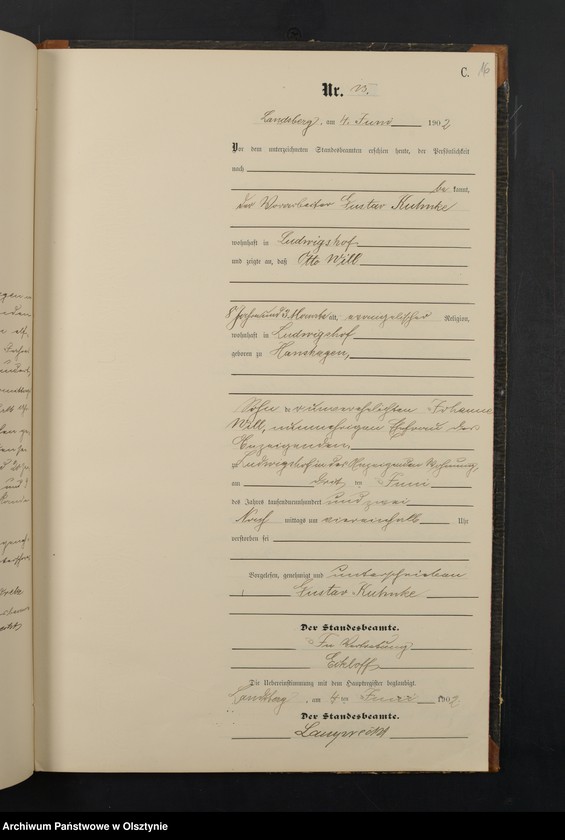 C. 16
Nr. 15.
Landsberg, am 4. Juni 1902
Vor dem unterzeichneten Standesbeamten erschien heute, der Persönlichkeit
nach
be kannt,
der Vorarbeiter Gustav Kuhnke
wohnhaft in Ludwigshof
und zeigte an, daß Otto Will
8 Jahre und 3 Monate alt, evangelischer Religion,
wohnhaft in Ludwigshof
geboren zu Hanshagen,
Sohn der unverehelichten Johanne
Will, nunmehrigen Ehefrau des
Anzeigenden
Ludwigshof in des Anzeigenden Wohnung
am drei ten Juni
des Jahres tausendneunhundert und zwei
Nach mittags um viereinhalb Uhr
verstorben sei
Vorgelesen, genehmigt und unterschrieben
Gustav Kuhnke
Der Standesbeamte.
In Vertretung
Eckloff
Die Uebereinstimmung mit dem Hauptregister beglaubigt.
Landsberg, am 4ten Juni 1902
Der Standesbeamte.
Archiwum Państwowe w Olsztynie